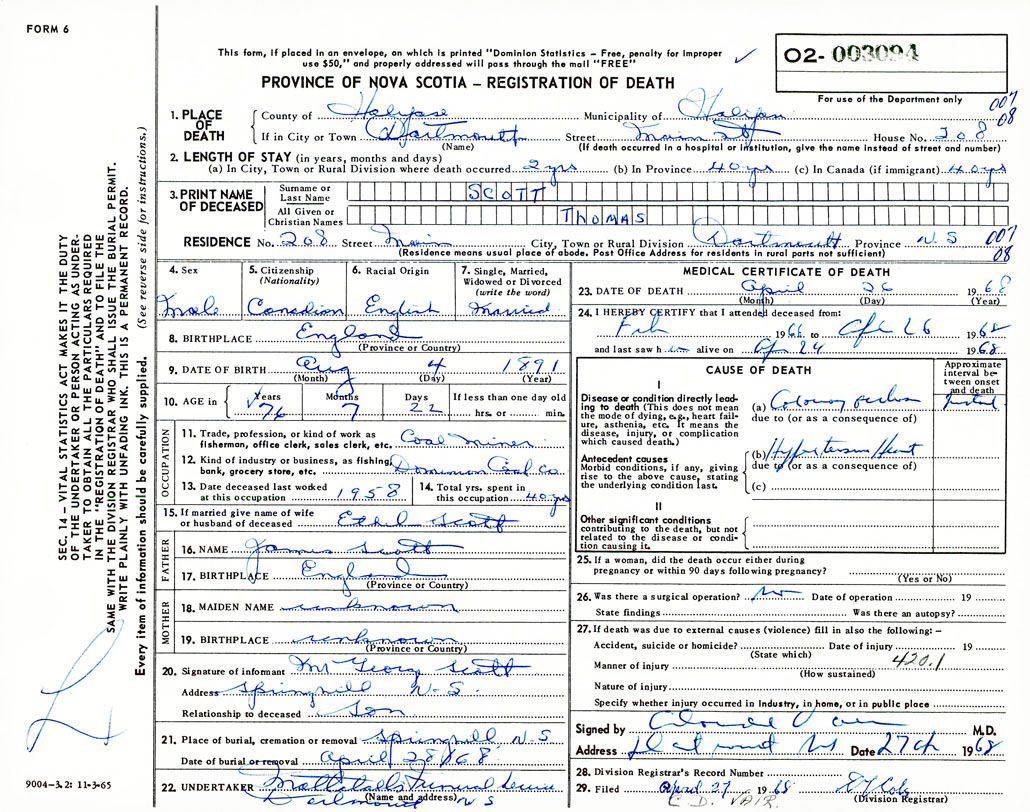 FORM 6
This form, if placed in an envelope, on which is printed "Dominion Statistics – Free, penalty for improper
use $50," and properly addressed will pass through the mail "FREE"
O2- 003094
For use of the Department only
PROVINCE OF NOVA SCOTIA – REGISTRATION OF DEATH
007
08
1. PLACE OF DEATH
County of Halifax Municipality of Halifax
If in City or Town Dartmouth Street Main St House No. 208
(Name) (If death occurred in a hospital or institution, give the name instead of street and number)
2. LENGTH OF STAY (in years, months and days)
(a) In City, Town or Rural Division where death occurred 2 yrs (b) In Province 40 yrs (c) In Canada (if immigrant) 40 yrs
3. PRINT NAME OF DECEASED
Surname or Last Name SCOTT
All Given or Christian Names THOMAS
RESIDENCE No. 208 Street Main City, Town or Rural Division Dartmouth Province N.S 007
08
(Residence means usual place of abode. Post Office Address for residents in rural parts not sufficient)
4. Sex
Male
5. Citizenship (Nationality)
Canadian
6. Racial Origin
English
7. Single, Married, Widowed or Divorced (write the word)
Married
8. BIRTHPLACE England
(Province or Country)
9. DATE OF BIRTH Aug 4 1891
(Month) (Day) (Year)
10. AGE in Years 76 Months 7 Days 22 If less than one day old
hrs. or min.
OCCUPATION
11. Trade, profession, or kind of work as
fisherman, office clerk, sales clerk, etc. Coal Miner
12. Kind of industry or business, as fishing,
bank, grocery store, etc. Dominion Coal Co
13. Date deceased last worked
at this occupation 1958
14. Total yrs. spent in
this occupation 40 yrs
15. If married give name of wife
or husband of deceased Ethel Scott
FATHER
16. NAME James Scott
17. BIRTHPLACE England
(Province or Country)
MOTHER
18. MAIDEN NAME unknown
19. BIRTHPLACE unknown
(Province or Country)
20. Signature of informant Mr Georg Scott
Address Springhill N-S.
Relationship to deceased Son
21. Place of burial, cremation or removal Springhill N.S
Date of burial or removal April 28/68
22. UNDERTAKER Mattatalls Funeral
(Name and address) N S
MEDICAL CERTIFICATE OF DEATH
23. DATE OF DEATH April 26 1968
(Month) (Day) (Year)
24. I HEREBY CERTIFY that I attended deceased from:
Feb 1966 to Apr 26 1968
and last saw h im alive on Apr 24 1968
CAUSE OF DEATH
Approximate interval between onset and death
I
Disease or condition directly leading to death (This does not mean the mode of dying, e.g., heart failure, asthenia, etc. It means the disease, injury, or complication which caused death.)
(a) Coronary
due to (or as a consequence of)
Antecedent causes
Morbid conditions, if any, giving rise to the above cause, stating the underlying condition last.
(b) Heart
due to (or as a consequence of)
(c)
II
Other significant conditions
contributing to the death, but not related to the disease or condition causing it.
25. If a woman, did the death occur either during
pregnancy or within 90 days following pregnancy?
(Yes or No)
26. Was there a surgical operation? No Date of operation 19
State findings Was there an autopsy?
27. If death was due to external causes (violence) fill in also the following: –
Accident, suicide or homicide? Date of injury 19
(State which)
Manner of injury 420.1
(How sustained)
Nature of injury
Specify whether injury occurred in industry, in home, or in public place
Signed by M.D.
Address Date 27th 1968
28. Division Registrar's Record Number
29. Filed April 27 1968
(Division Registrar)
C. D. VAIR.
SEC. 14 – VITAL STATISTICS ACT MAKES IT THE DUTY
OF THE UNDERTAKER OR PERSON ACTING AS UNDERTAKER TO OBTAIN ALL THE PARTICULARS REQUIRED
IN THE "REGISTRATION OF DEATH" AND TO FILE THE
SAME WITH THE DIVISION REGISTRAR WHO SHALL ISSUE THE BURIAL PERMIT.
WRITE PLAINLY WITH UNFADING INK. THIS IS A PERMANENT RECORD.
Every item of information should be carefully supplied. (See reverse side for instructions.)
9004-3.2: 11-3-65